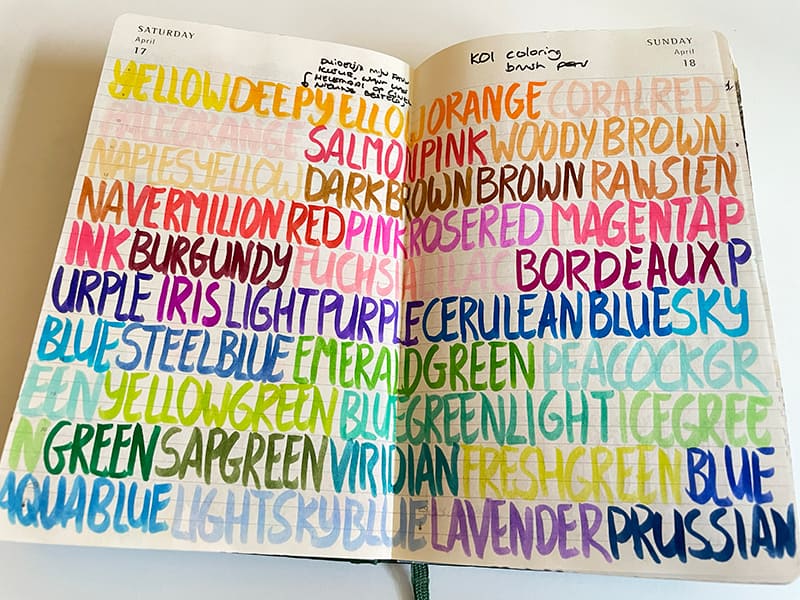 SATURDAY
April
17
SUNDAY
April
18
Duidelijk mijn
kleur, want
helemaal op
nieuwe
KOI coloring
brush pen
YELLOW DEEPYELLOW ORANGE CORALRED
PALEORANGE SALMONPINK WOODY BROWN
NAPLESYELLOW DARK BROWN BROWN RAWSIEN
NA VERMILION RED PINK ROSERED MAGENTA P
INK BURGUNDY FUCHSIA LILAC BORDEAUX P
URPLE IRIS LIGHTPURPLE CERULEANBLUE SKY
BLUE STEELBLUE EMERALDGREEN PEACOCKGR
EEN YELLOWGREEN BLUEGREENLIGHT ICEGREE
N GREEN SAPGREEN VIRIDIAN FRESHGREEN BLUE
AQUABLUE LIGHTSKYBLUE LAVENDER PRUSSIAN